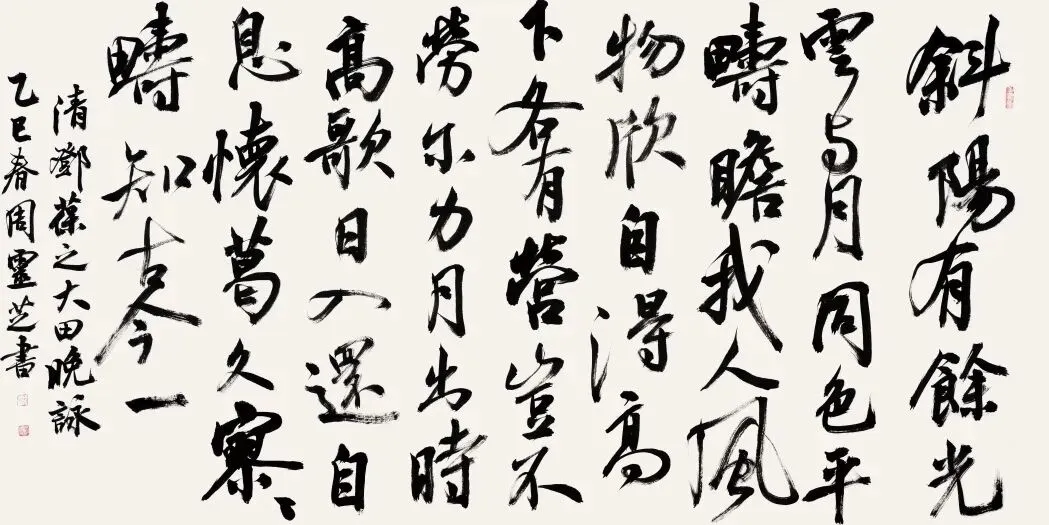 斜陽有餘光
雲与月同色平
疇瞻我人風
物欣自得高
下各有營豈不
勞尔力月出時
高歌日入還自
息懷葛久寥〻
疇知古今一
清鄧葆之大田晚詠
乙巳春周靈芝書